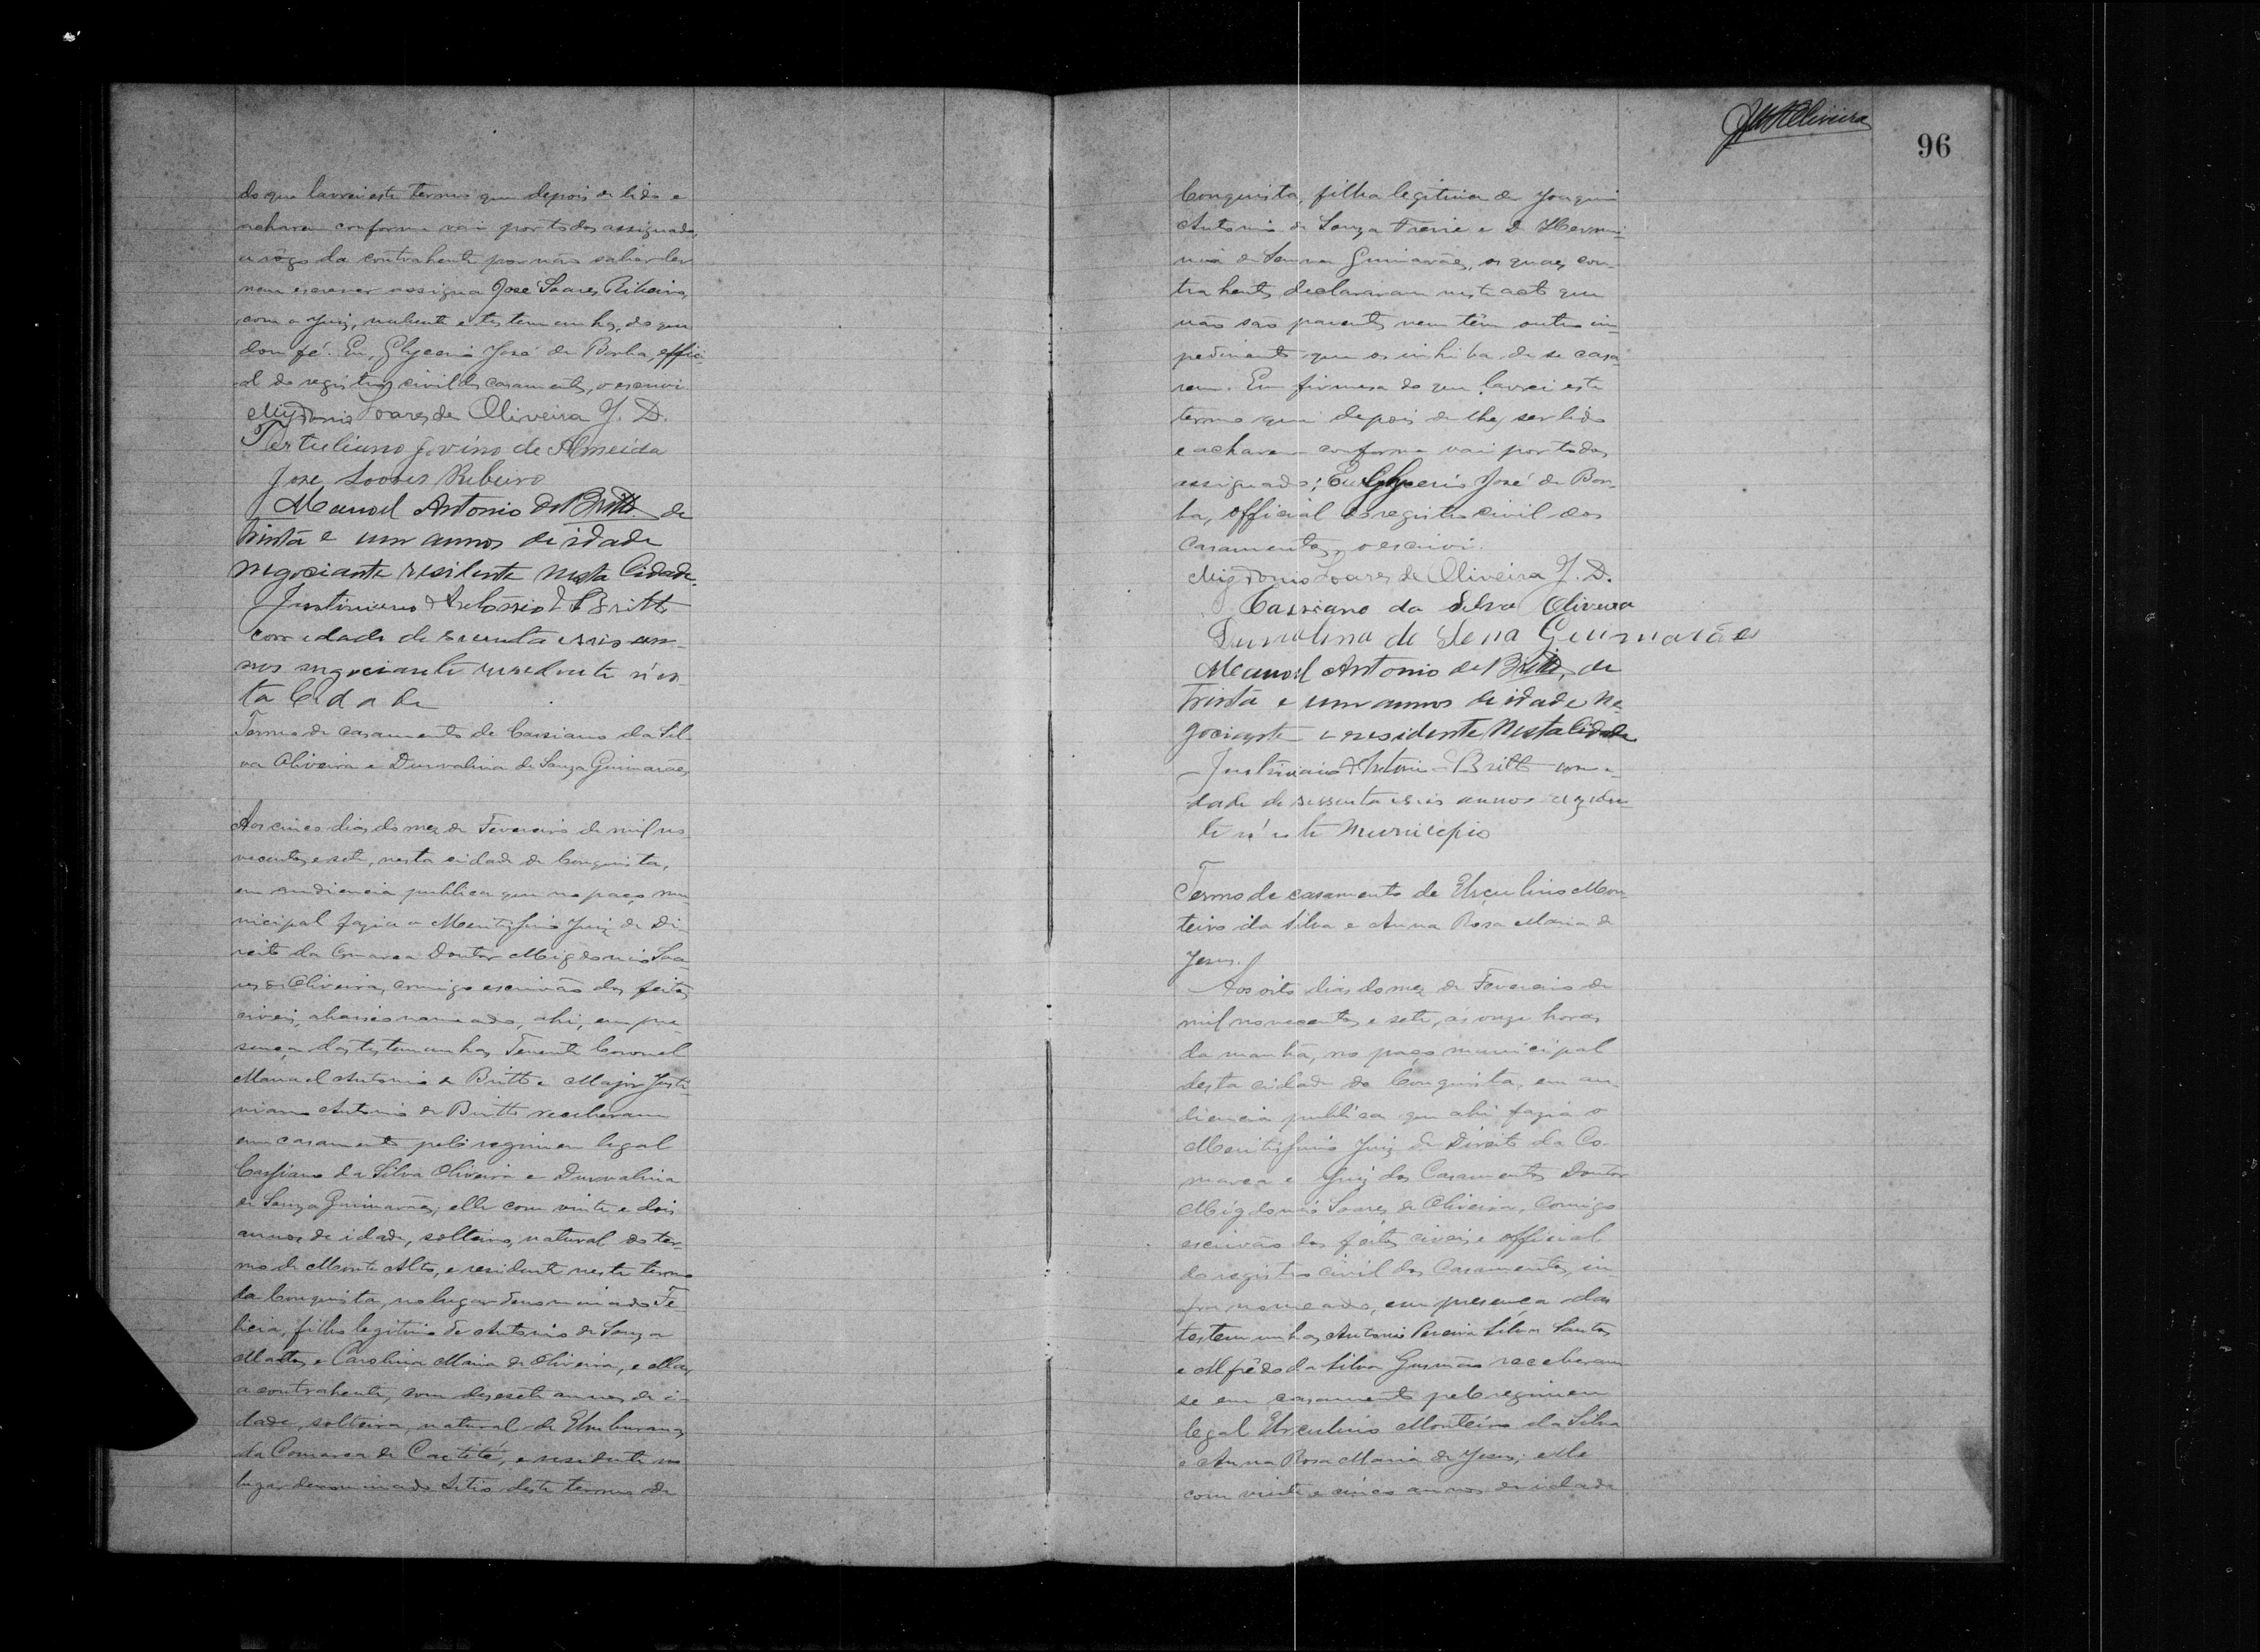 do que lavrei este termo que depois de lido e
acharem conforme vai por todos assignado,
a rôgo da contrahente por não saber ler
nem escrever assigna José Soares Ribeiro,
com o Juiz, nubente e testemunhas, do que
dou fé. Eu, Glycerio José de Borba, offici
al do registro civil dos casamentos, o escrevi.
Migdonio Soares de Oliveira J. D.
Tertuliano Jovino de Almeida
Jose Soares Ribeiro
Manoel Antonio de Britto de
trinta e um annos de idade
negociante residente nesta Cidade.
Justiniano Antonio de Britto
com edade de secenta e seis an-
nos negociante residente n'es-
ta Cidade
Termo de casamento de Cassiano da Sil
va Oliveira e Durvalina de Souza Guimarães
Aos cinco dias do mez de Fevereiro de mil no-
vecentos e sete, nesta cidade de Conquista,
em audiencia publica que no paço mu-
nicipal fazia o Meritissimo Juiz de Di
reito da Comarca Doutor Migdonio Soa-
res de Oliveira, comigo escrivão dos feitos
civeis, abaixo nomeado, ahi, em pre-
sença das testemunhas Tenente Coronel
Manoel Antonio de Britto e Major Justi
niano Antonio de Britto receberam
em casamento pelo regimen legal
Cassiano da Silva Oliveira e Durvalina
de Souza Guimarães; elle com vinte e dois
annos de idade, solteiro, natural do ter-
mo de Monte Alto, e residente neste termo
da Conquista, no lugar denominado Fe-
licia, filho legitimo de Antonio de Souza
Mattos e Carolina Maria de Oliveira, e ella,
a contrahente, com desesete annos de i-
dade, solteira, natural de Umburanas
da Comarca de Caetité, e residente no
lugar denominado Sitio deste termo de
96
Conquista, filha legitima de Joaquim
Antonio de Souza Freire e D. Hermi-
nia de Souza Guimarães, os quaes con-
trahentes declararam neste acto que
não são parentes nem têm outro im-
pedimento que os inhiba de se casa
rem. Em firmesa do que lavrei este
termo que depois de lhes ser lido
e acharem conforme vai por todos
assignado; Eu Glycerio José de Bor-
ba, official do registro civil dos
casamentos, o escrevi.
Migdonio Soares de Oliveira J. D.
Cassiano da Silva Oliveira
Durvalina de Sena Guimarães
Manoel Antonio de Britto, de
trinta e um annos de idade ne-
gociante e residente nesta Cidade
Justiniano Antonio de Britto com e-
dade de sessenta e seis annos rezeden-
te n'este Municipio
Termo de casamento de Herculino Mon-
teiro da Silva e Anna Rosa Maria de
Jesus.
Aos oito dias do mez de Fevereiro de
mil novecentos e sete, ás onze horas
da manhã, no paço municipal
desta cidade de Conquista, em au-
diencia publica que ahi fazia o
Meritissimo Juiz de Direito da Co-
marca e Juiz dos Casamentos Doutor
Migdonio Soares de Oliveira, Comigo
escrivão dos feitos civeis e official
do registro civil dos Casamentos, in-
fra nomeado, em presença das
testemunhas Antonio Pereira Silva Santos
e Alfrêdo da Silva Gusmão receberam
se em casamento pelo regimem
legal Herculino Monteiro da Silva
e Anna Rosa Maria de Jesus; elle
com vinte e cinco annos de idade